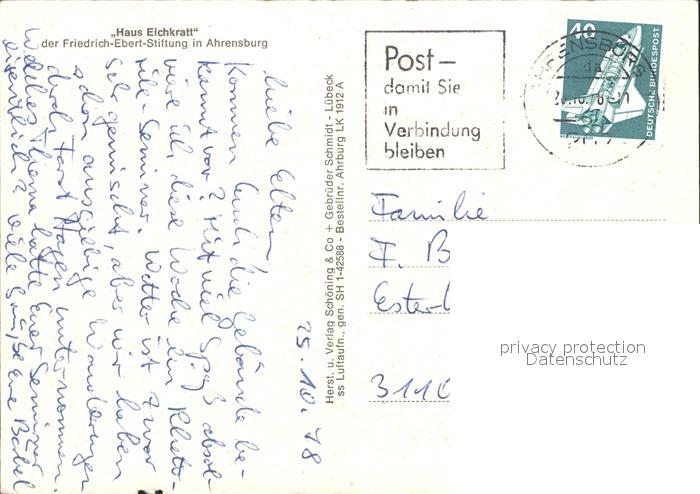 „Haus Eichkratt"
der Friedrich-Ebert-Stiftung in Ahrensburg
25.10.78
Liebe Eltern!
Kommen Euch die Gebäude be-
kannt vor? Mit viel Spaß absol-
viere ich diese Woche ein Rheto-
rik-Seminar. Wetter ist zwar
sehr gemischt, aber wir haben
schon ausgiebige Wanderungen
durch Forst Hagen unternommen.
Welches Thema hatte Euer Seminar
eigentlich? Viele Grüße Eure Bärbel
Herst. u. Verlag Schöning & Co + Gebrüder Schmidt - Lübeck
ss Luftaufn., gen. SH 1-42588 - Bestellnr. Ahrburg LK 1912 A
Post –
damit Sie
in
Verbindung
bleiben
AHRENSBURG
40
DEUTSCHE BUNDESPOST
Familie
F. B
Ester
311
privacy protection
Datenschutz